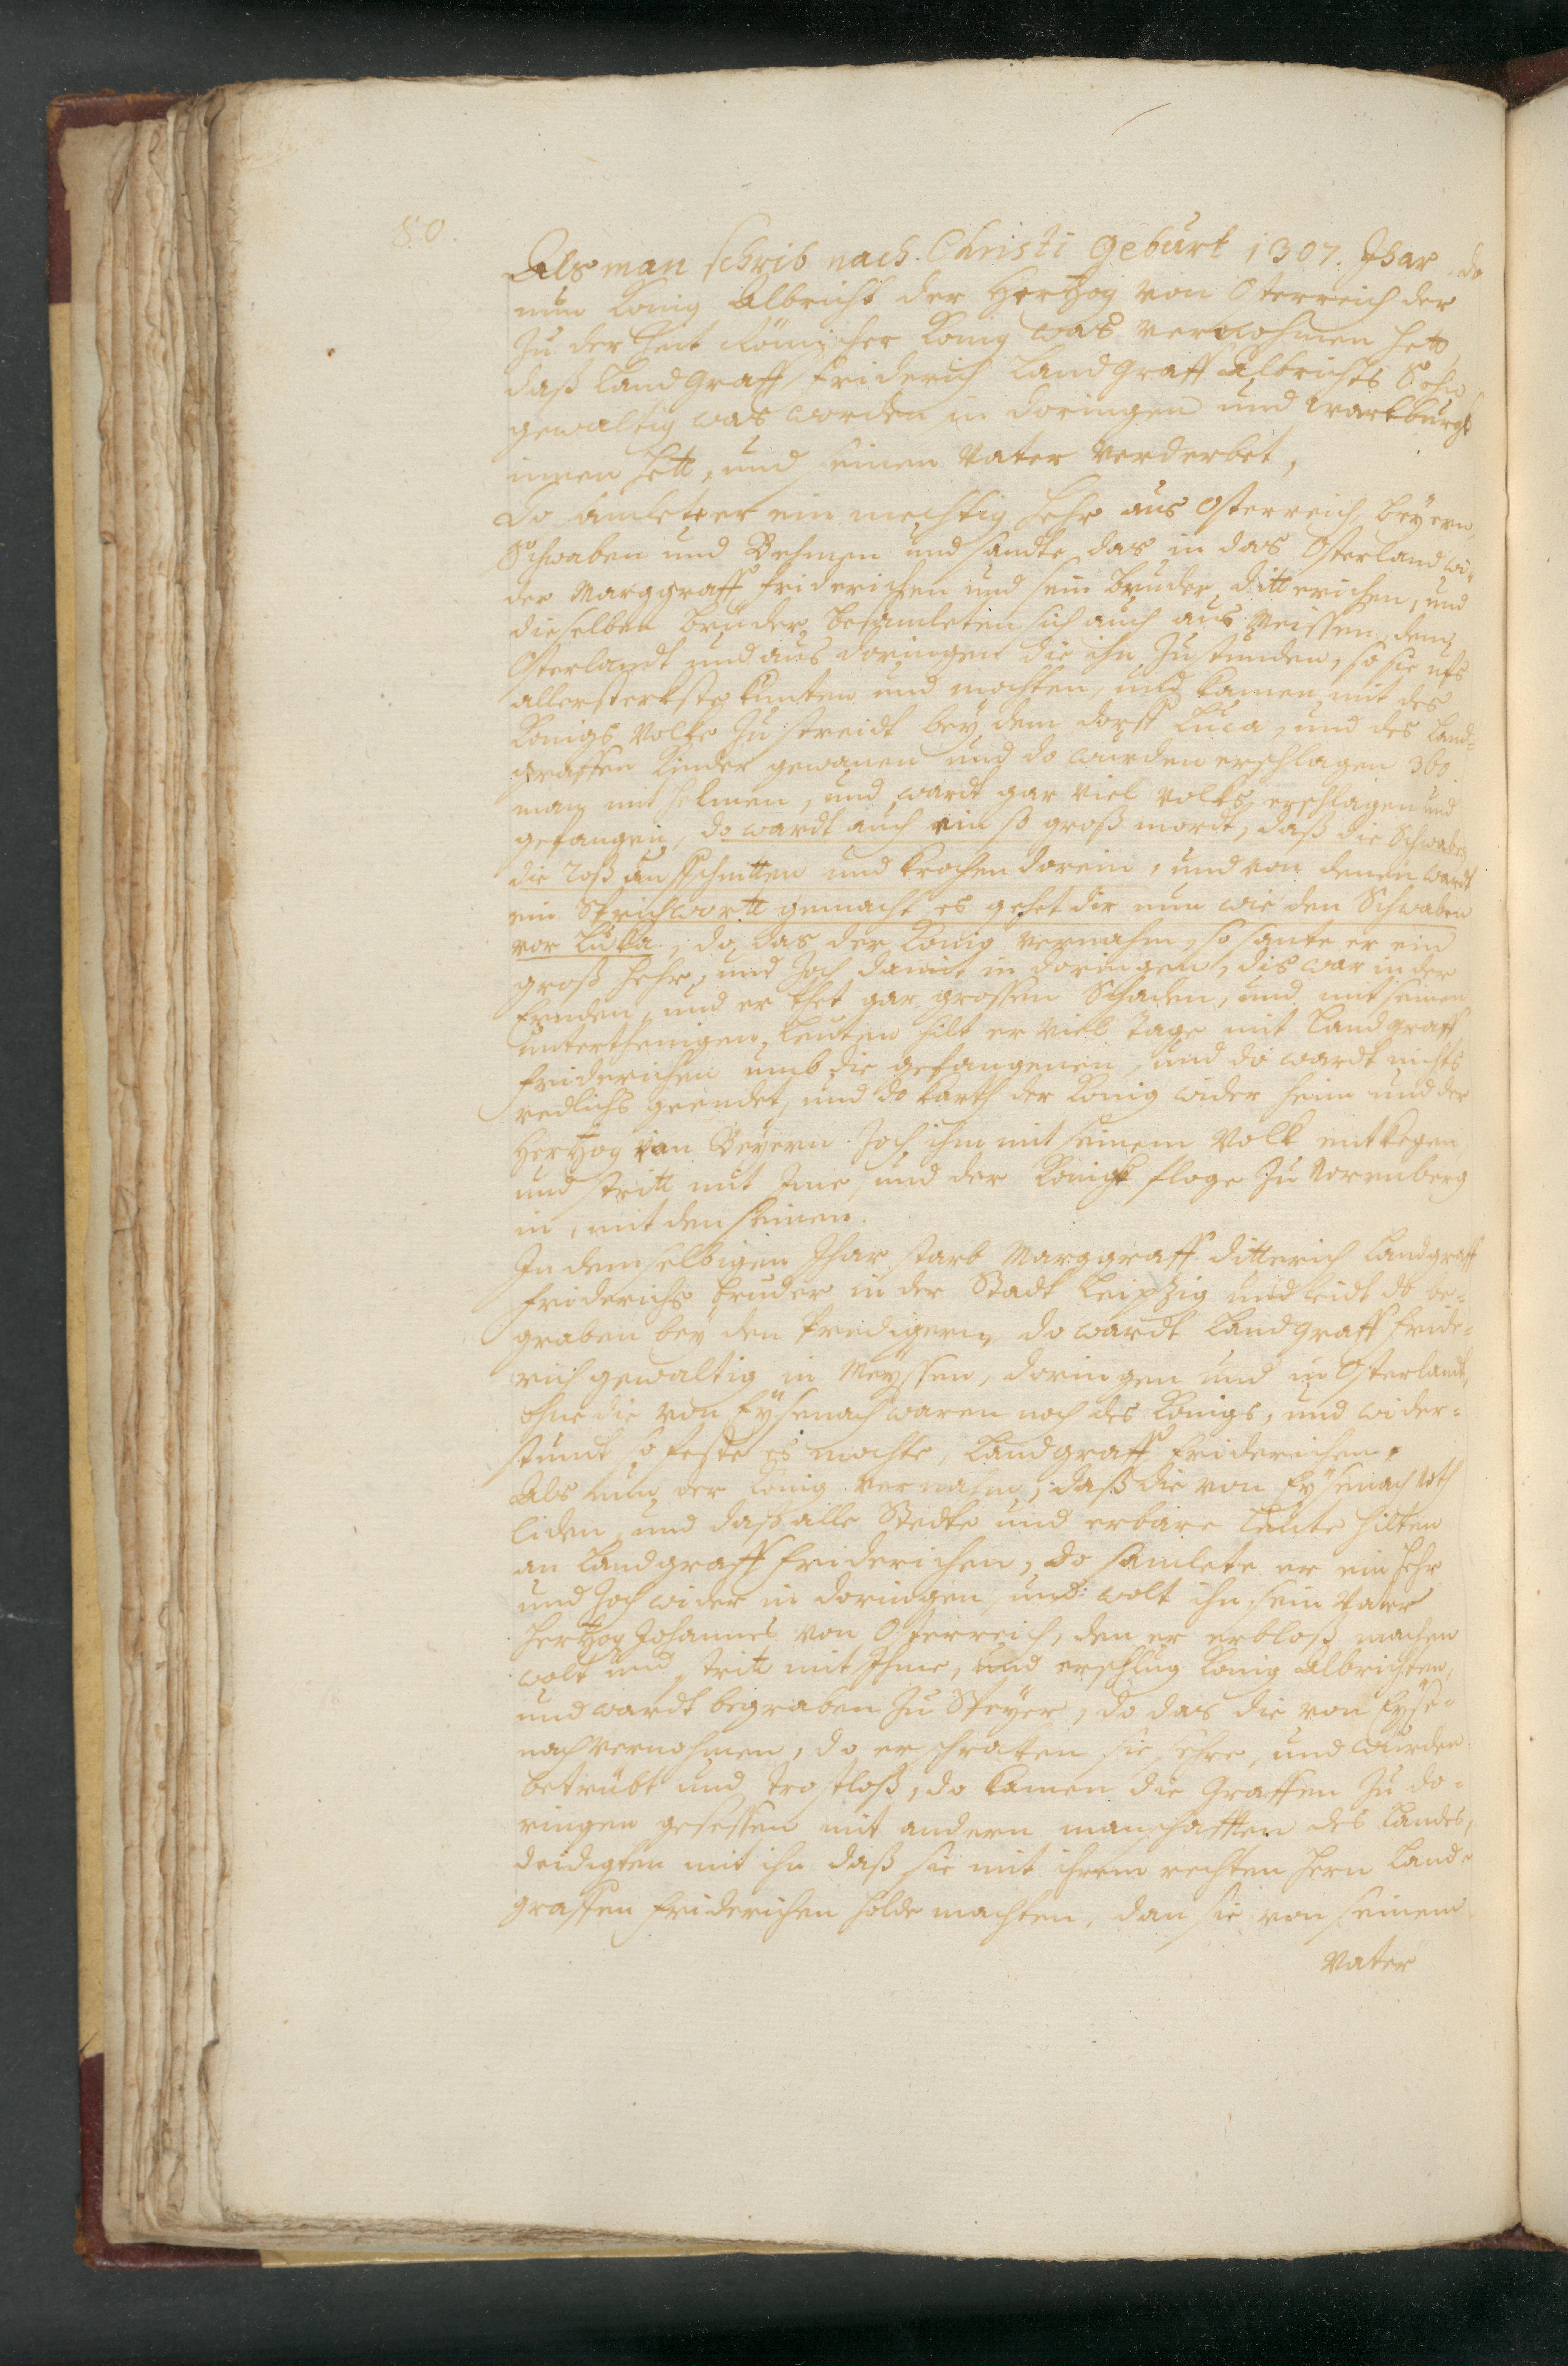 80.
Als man schrib nach Christi geburt 1307. Jhar, do
nun König Albrich der Hertzog von Osterreich der
zu der Zeit Römischer König was vernohmen hett
daß Landgraff Friderich Landgraff Albrichts Sohn
gewaltig was worden in Doringen und Wartburgk
innen hett, und seinen Vater verderbet,
Do samlet er ein mechtig Hehr aus Osterreich, Beyern,
Schwaben und Behmen und sandte das in das Osterland wi-
der Marggraff Friderichen und sein Bruder Ditterichen, und
dieselben Brüder besamleten sich auch aus Meissen, dem
Osterlandt und aus Doringen die ihn zustunden, so sie ufs
allersterkste kunten und mochten, und kamen mit des
Königs Volke zu streidt bey dem Dorff Luca, und des Land-
graffen Kinder gewanen und do wurden erschlagen 360.
man mit Helmen, und wardt gar viel Volks erschlagen und
gefangen, do wardt auch ein so groß mordt, daß die Schwaben
die Roß aufschnitten und krochen dorein, und von denen wardt
ein Sprichwortt gemacht es gehet dir nun wie den Schwaben
vor Luka., do das der König vernahm, so sante er ein
groß Hehr, und zoch damit in Doringen, dis war in der
Ernden, und er thet gar grossen Schaden, und mit seinen
unterthenigen Leuten hilt er viel Tage mit Landgraff
Friderichen umb die gefangenen, und do wardt nichts
redlichs geendet, und do karth der König wider heim und der
Hertzog von Beyern zoch ihm mit seinem Volk entkegen,
und stritt mit Ime, und der Königk floge zu Norenberg
in, mit den seinen.
In demselbigen Jhar starb Marggraff Ditterich Landgraff
Friderichs Bruder in der Stadt Leipzig und leidt do be-
graben bey den Predigern, do wardt Landgraff Fride-
rich gewaltig in Meyssen, Doringen und in Osterlandt,
ohne die von Eysenach waren noch des Königs, und wider-
stundt so feste es mochte, Landgraff Friderichen,
Als nun der König vernahm, daß die von Eysenach Noth
liden, und daß alle Stedte und erbare Leute hilten
an Landgraff Friderichen, do samlete er ein Hehr
und zoch wider in Doringen, und wolt ihn sein Vater
Hertzog Johannes von Osterreich, den er erbloß machen
wolt und stritt mit Ihme, und erschlug König Albrichten,
und wardt begraben zu Speyer, do das die von Eyse-
nach vernohmen, do erschraken sie sehre, und wurden
betrübt und trostloß, do kamen die Graffen zu Do-
ringen gesessen mit andern manschafften des Landes,
deidigten mit ihn daß sie mit ihrem rechten Hern Land-
graffen Friderichen holde machten, dan sie von seinem
Vater